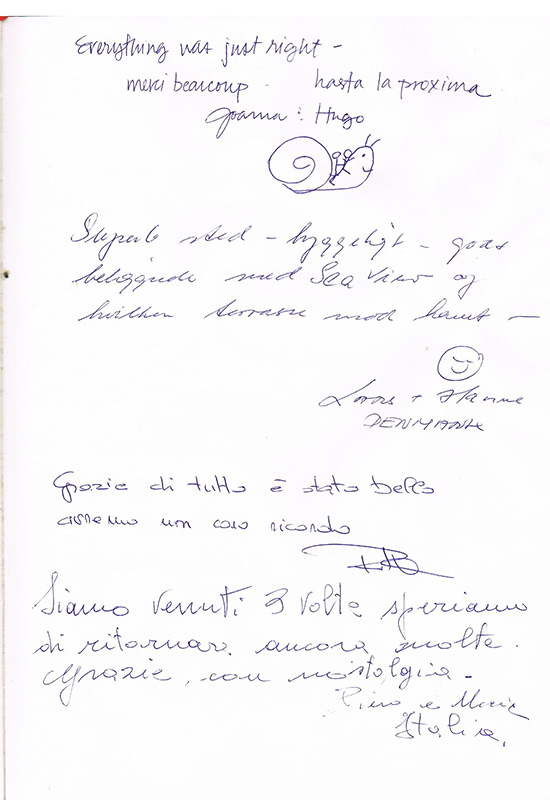 Everything was just right -
merci beaucoup. hasta la proxima
Joanna: Hugo
Superb sted - hyggeligt - god
beliggende med Sea View og
hvilken terrasse mod havet -
+ Hanne
DENMARK
Grazie di tutto è stato bello
avremo un caro ricordo
Siamo venuti 3 volte speriamo
di ritornar. ancora molte.
Grazie, con nostalgia -
Piero e Maria
Italia.